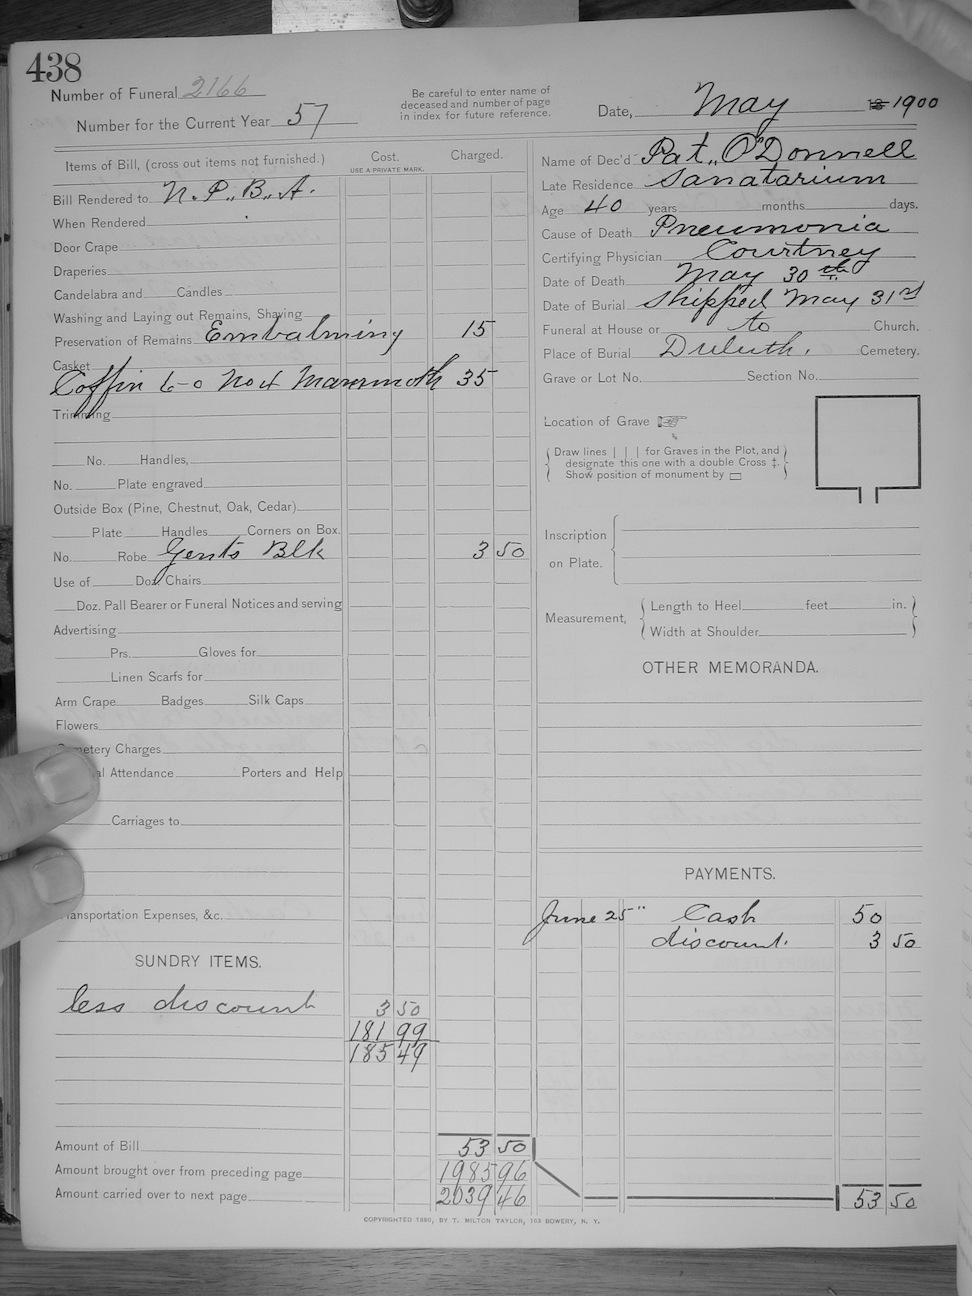 438
Number of Funeral 2166
Number for the Current Year 57
Be careful to enter name of
deceased and number of page
in index for future reference.
Date, May 18 1900
Items of Bill, (cross out items not furnished.)
Cost.
USE A PRIVATE MARK.
Charged.
Bill Rendered to N. P. B. A.
When Rendered
Door Crape
Draperies
Candelabra and Candles
Washing and Laying out Remains, Shaving
Preservation of Remains Embalming 15
Casket
Coffin 6-0 No 4 Mammoth 35
Trimming
No. Handles,
No. Plate engraved
Outside Box (Pine, Chestnut, Oak, Cedar)
Plate Handles Corners on Box.
No. Robe Gents Blk 3 50
Use of Doz Chairs
Doz. Pall Bearer or Funeral Notices and serving
Advertising
Prs. Gloves for
Linen Scarfs for
Arm Crape Badges Silk Caps
Flowers
Cemetery Charges
al Attendance Porters and Help
Carriages to
ransportation Expenses, &c.
SUNDRY ITEMS.
less discount 3 50
181 99
185 49
Amount of Bill 53 50
Amount brought over from preceding page 1985 96
Amount carried over to next page 2039 46
Name of Dec'd Pat. O'Donnell
Late Residence Sanatarium
Age 40 years months days.
Cause of Death Pneumonia
Certifying Physician Courtney
Date of Death May 30th
Date of Burial Shipped May 31rd
Funeral at House or to Church.
Place of Burial Duluth. Cemetery.
Grave or Lot No. Section No.
Location of Grave
Draw lines | | | for Graves in the Plot, and
designate this one with a double Cross ‡.
Show position of monument by ▭
Inscription
on Plate.
Measurement,
Length to Heel feet in.
Width at Shoulder
OTHER MEMORANDA.
PAYMENTS.
June 25" Cash 50
discount. 3 50
53 50
COPYRIGHTED 1890, BY T. MILTON TAYLOR, 103 BOWERY, N. Y.